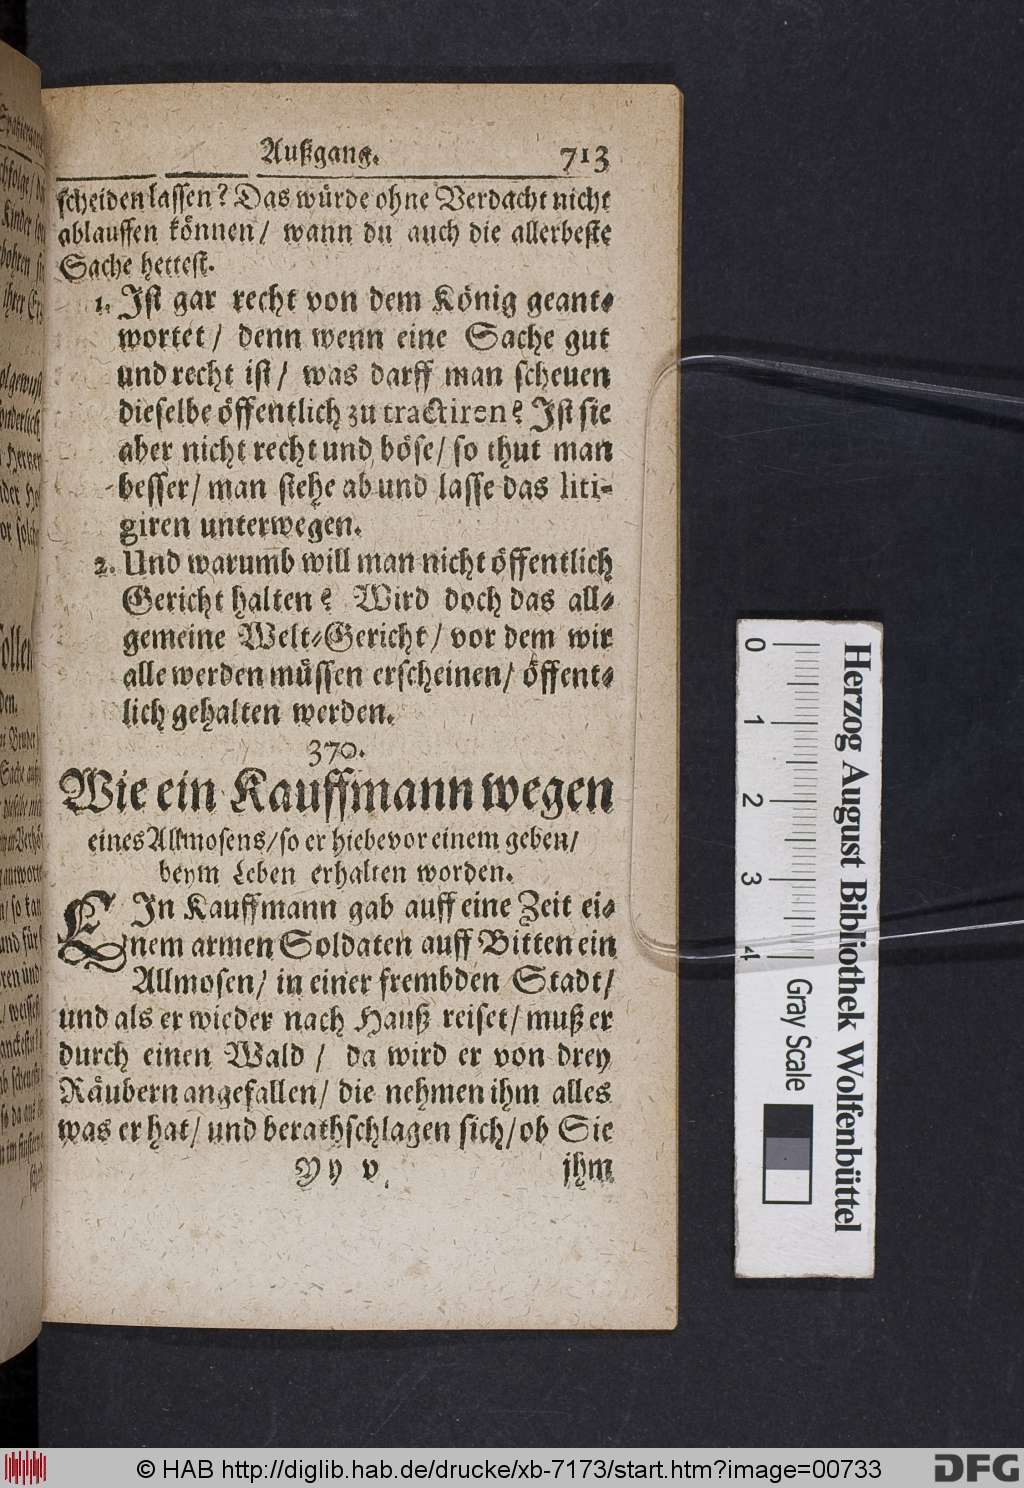 Außgang. 713
scheiden lassen? Das würde ohne Verdacht nicht
ablauffen können/ wann du auch die allerbeste
Sache hettest.
1. Ist gar recht von dem König geant⸗
wortet/ denn wenn eine Sache gut
und recht ist/ was darff man scheuen
dieselbe öffentlich zu tractiren? Ist sie
aber nicht recht und böse/ so thut man
besser/ man stehe ab und lasse das liti-
giren unterwegen.
2. Und warumb will man nicht öffentlich
Gericht halten? Wird doch das all⸗
gemeine Welt⸗Gericht/ vor dem wir
alle werden müssen erscheinen/ öffent⸗
lich gehalten werden.
370.
Wie ein Kauffmann wegen
eines Allmosens/ so er hiebevor einem geben/
beym Leben erhalten worden.
EIn Kauffmann gab auff eine Zeit ei⸗
nem armen Soldaten auff Bitten ein
Allmosen/ in einer frembden Stadt/
und als er wieder nach Hauß reiset/ muß er
durch einen Wald/ da wird er von drey
Räubern angefallen/ die nehmen ihm alles
was er hat/ und berathschlagen sich/ ob Sie
Yy v ihm
Herzog August Bibliothek Wolfenbüttel
0 1 2 3 4 Gray Scale
© HAB http://diglib.hab.de/drucke/xb-7173/start.htm?image=00733
DFG